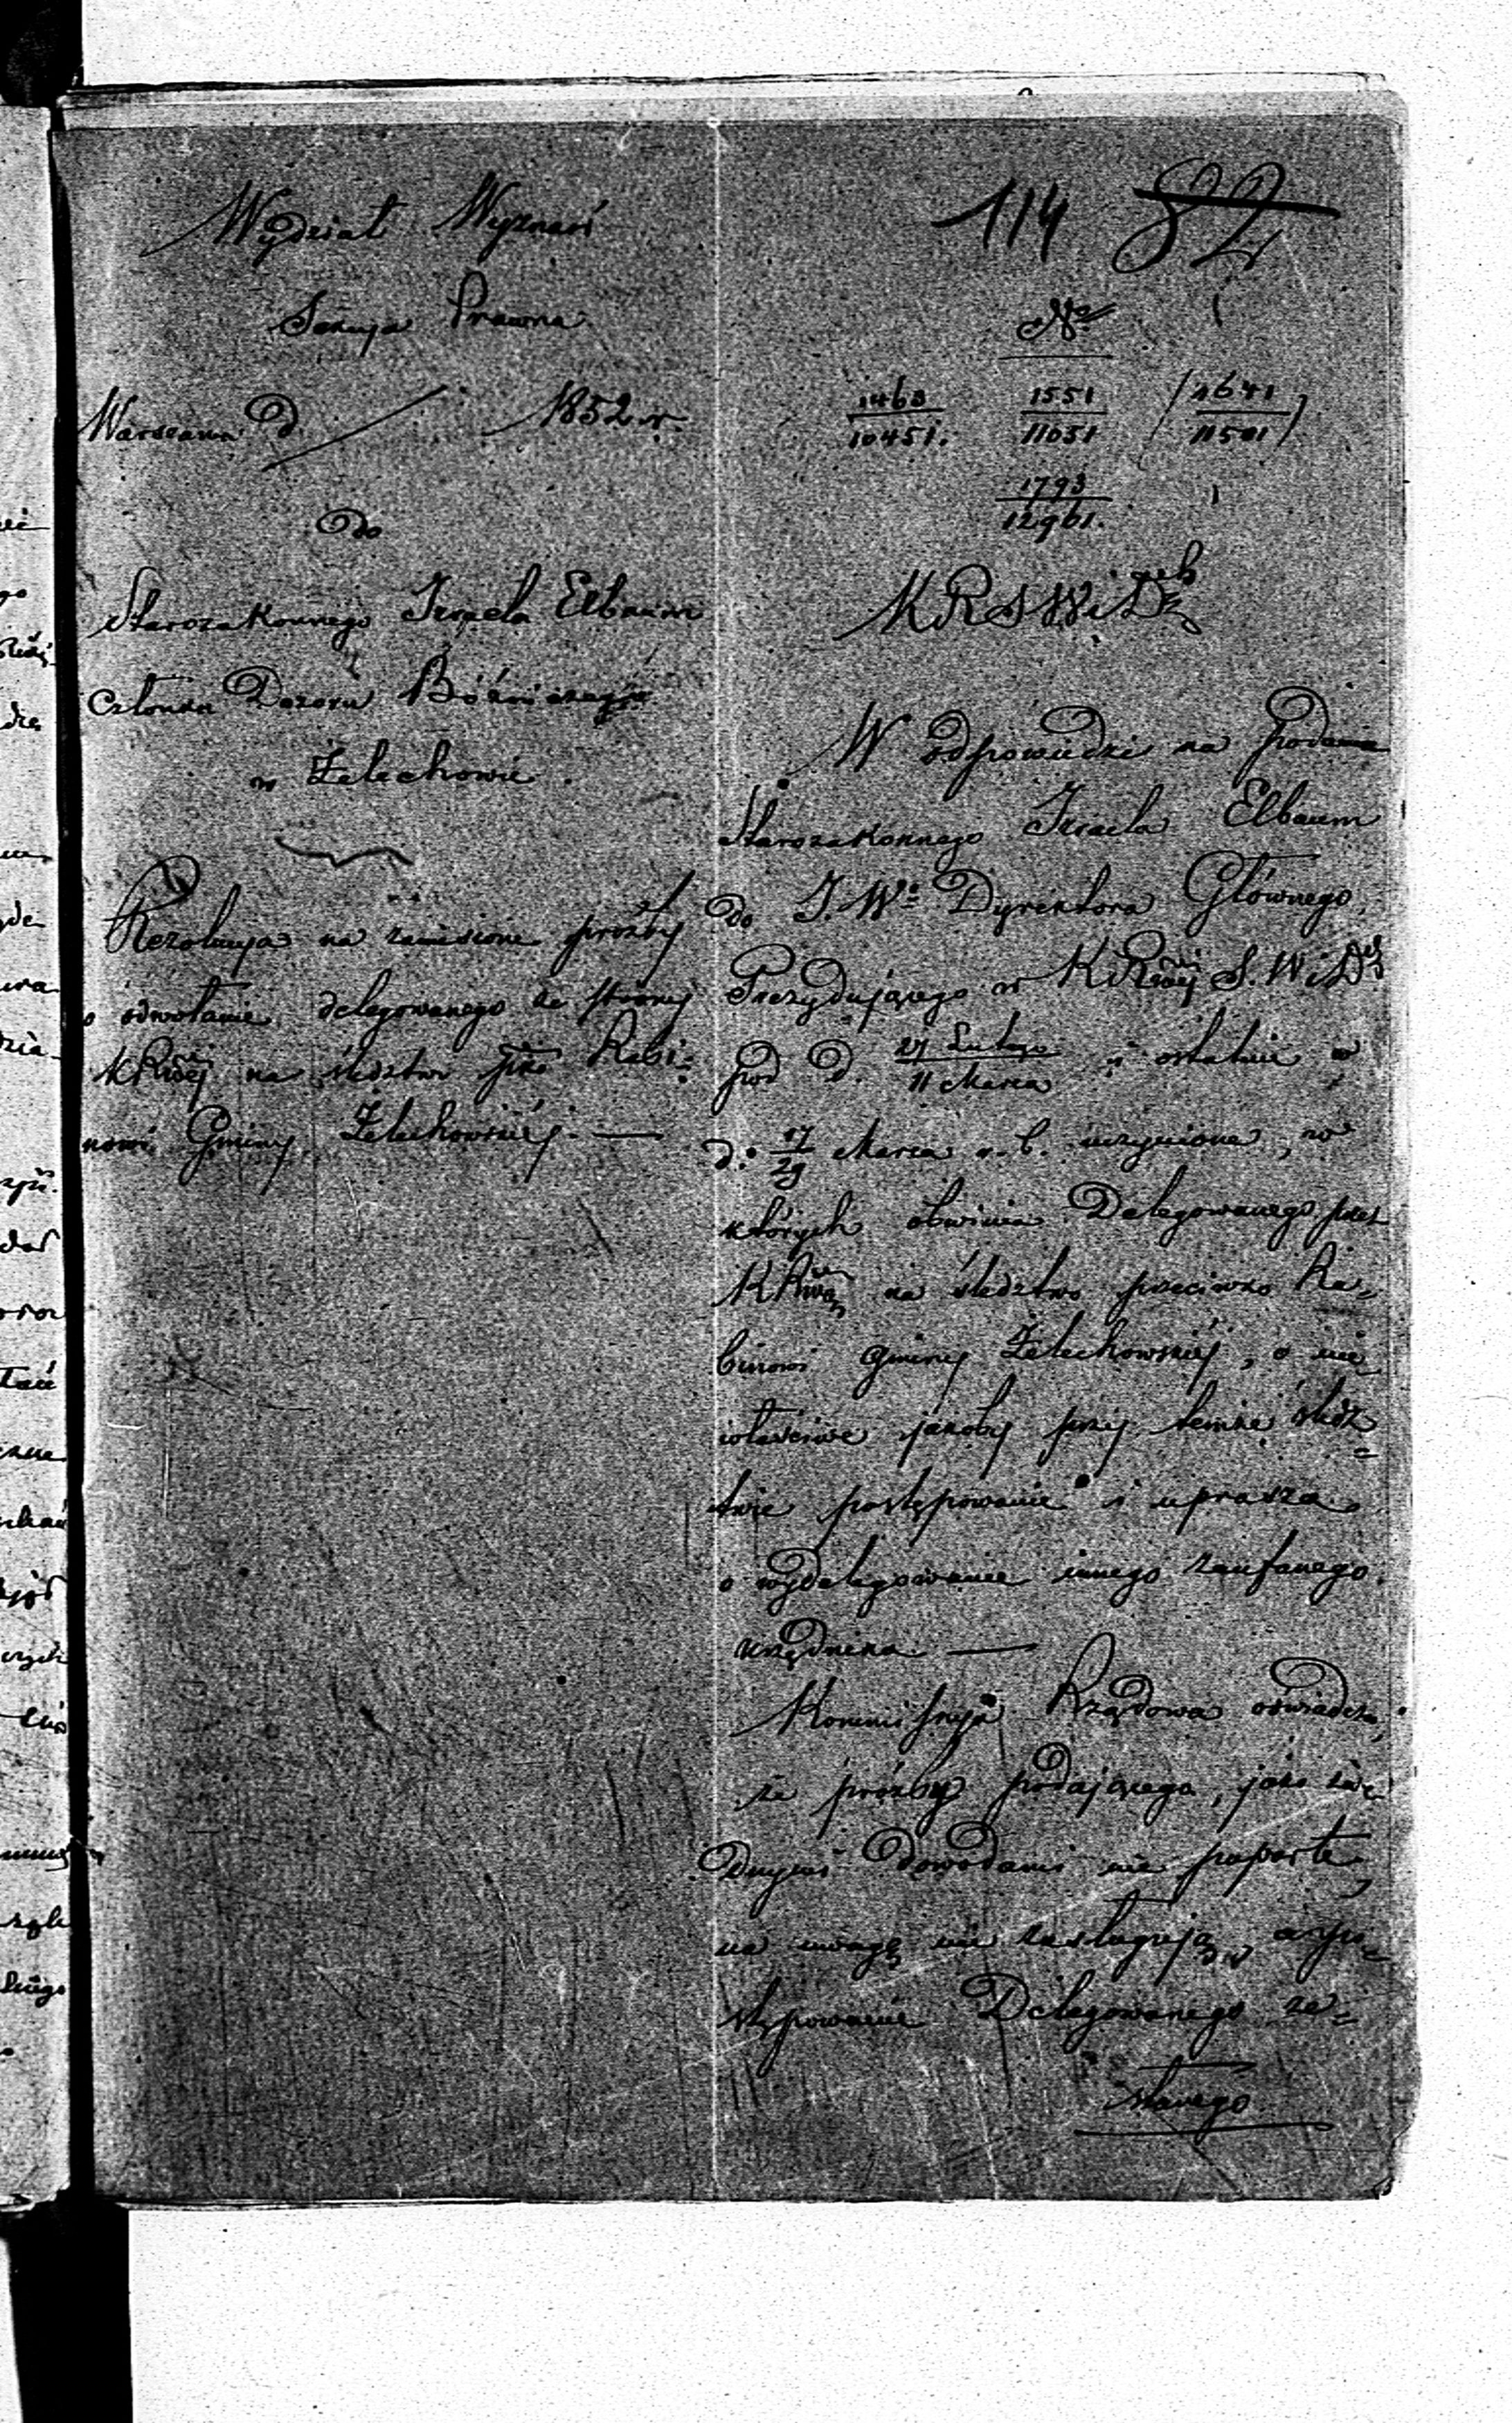 Wydział Wyznań
Sekcja Prawna
Warszawa d. 1852 r.
Do
Starozakonnego Izraela Elbaum
Członka Dozoru Bóżniczego
w Żelechowie.
Rezolucja na zaniesione prośby
o odwołanie delegowanego ze strony
KRwej na śledztwo pko Rabi-
nowi Gminy Żelechowskiej. —
114 82
No
1463 1551 (1641
10451. 11051 11501)
1793
12961.
KRSWiDch
W odpowiedzi na podania
Starozakonnego Izraela Elbaum
do J.Wo Dyrektora Głównego
Prezydującego w KRwej S.WiDch
pod d. 27 Lutego / 11 Marca i ostatnie w
d. 17/29 Marca r. b. uczynione, w
których obwinia Delegowanego przez
KRwą na śledztwo przeciwko Ra-
binowi Gminy Żelechowskiej, o nie
właściwe jakoby przy temże śledz
=
twie postępowanie i uprasza
o wydelegowanie innego zaufanego
urzędnika —
Kommissyja Rządowa oświadcza,
że prośby podającego, jako żad
dnymi dowodami nie poparte,
na uwagę nie zasługują, a po-
stępowanie Delegowanego ze-
stanego